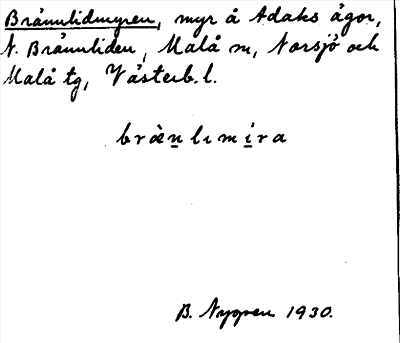 Brännlidmyren, myr å Adaks ägor,
N. Brännliden, Malå sn, Norsjö och
Malå tg, Västerb. l.
bræ̀n̲lımi̲ra
B. Nygren 1930.